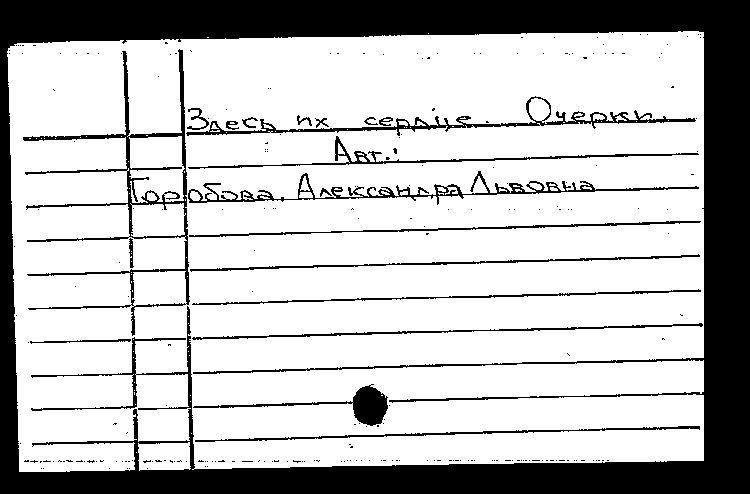 Здесь их сердце. Очерки.
Авт.:
Горобова, Александра Львовна